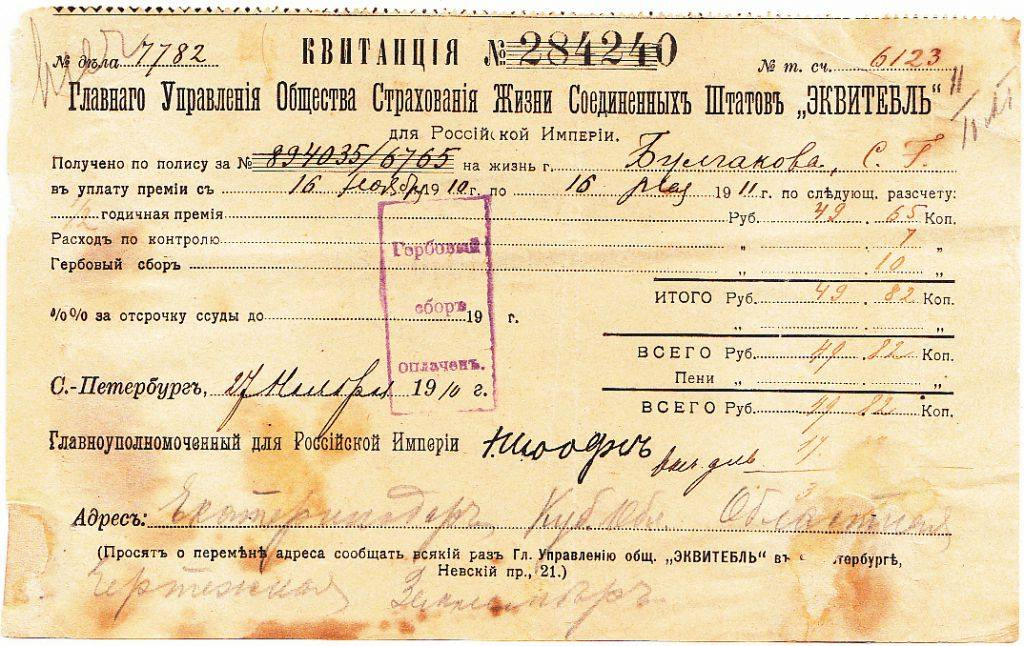 № дѣла 7782 КВИТАНЦІЯ № 284240 № т. сч. 6123
Главнаго Управленія Общества Страхованія Жизни Соединенныхъ Штатовъ „ЭКВИТЕБЛЬ“
для Россійской Имперіи.
Получено по полису за № 894035/6765 на жизнь г. Булгакова, С. Г.
въ уплату преміи съ 16 Ноября 1910 г. по 16 Мая 1911 г. по слѣдующ. разсчету:
1/2 годичная премія Руб. 49 . 65 Коп.
Расходъ по контролю „ 7 „
Гербовый сборъ „ 10 „
ИТОГО Руб. 49 . 82 Коп.
%% за отсрочку ссуды до 19 г. „ „
ВСЕГО Руб. 49 . 82 Коп.
Пени „ „
С.-Петербургъ, 27 Ноября 1910 г.
ВСЕГО Руб. 49 . 82 Коп.
Гербовый
сборъ
оплаченъ.
Главноуполномоченный для Россійской Имперіи
Адресъ: Екатеринодаръ, Куб. Обл. Областная
(Просятъ о перемѣнѣ адреса сообщать всякій разъ Гл. Управленію общ. „ЭКВИТЕБЛЬ“ въ тербургѣ,
Невскій пр., 21.)
Чертежная